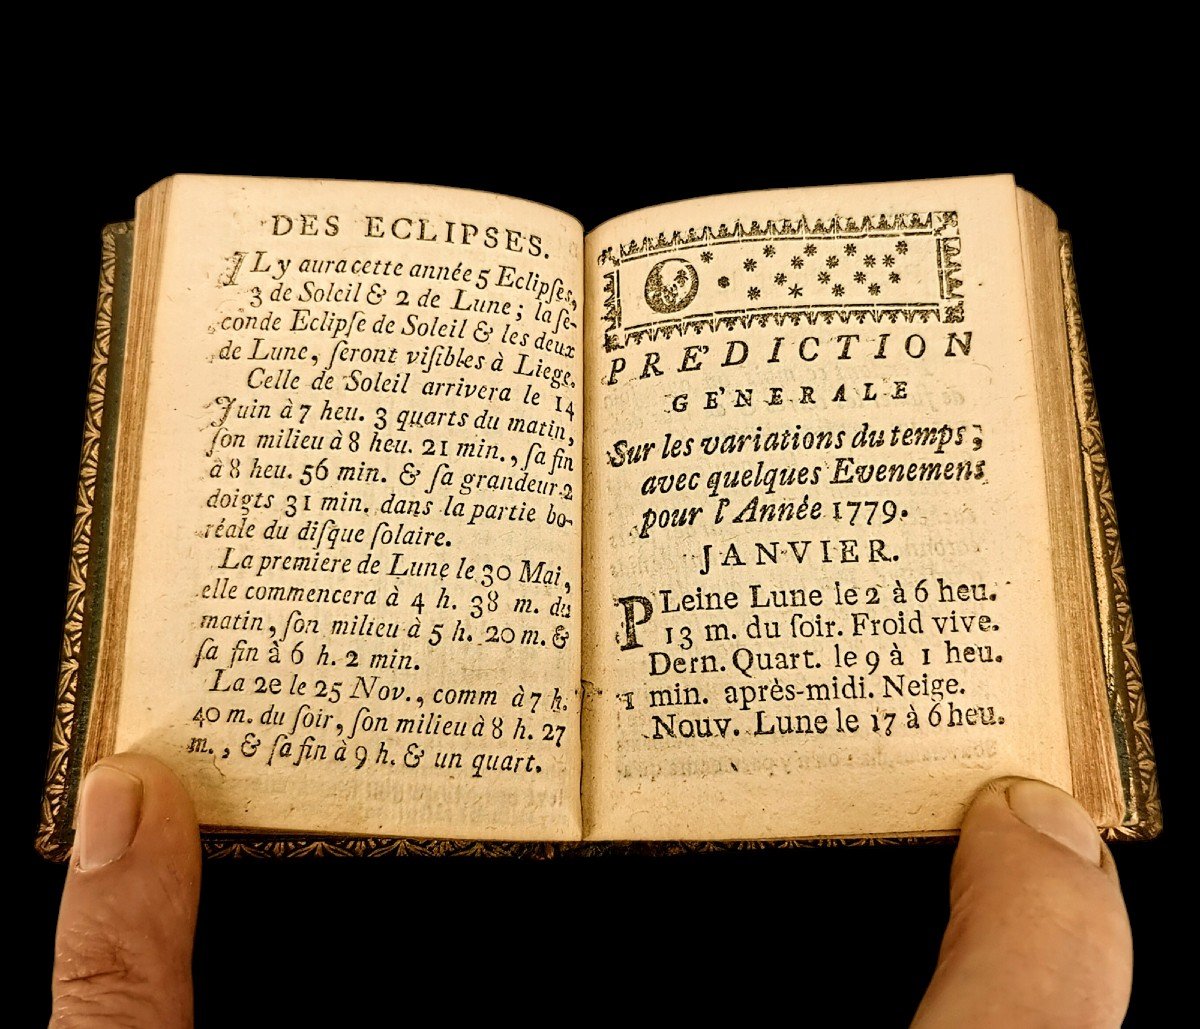 DES ECLIPSES.
IL y aura cette année 5 Eclipſes,
3 de Soleil & 2 de Lune; la ſe-
conde Eclipſe de Soleil & les deux
de Lune, ſeront viſibles à Liege.
Celle de Soleil arrivera le 14
Juin à 7 heu. 3 quarts du matin,
ſon milieu à 8 heu. 21 min., ſa fin
à 8 heu. 56 min. & ſa grandeur 2
doigts 31 min. dans la partie bo-
réale du diſque ſolaire.
La premiere de Lune le 30 Mai,
elle commencera à 4 h. 38 m. du
matin, ſon milieu à 5 h. 20 m. &
ſa fin à 6 h. 2 min.
La 2e le 25 Nov., comm à 7 h.
40 m. du ſoir, ſon milieu à 8 h. 27
m., & ſa fin à 9 h. & un quart.
PRÉDICTION
GÉNERALE
Sur les variations du temps;
avec quelques Evenemens
pour l'Année 1779.
JANVIER.
PLeine Lune le 2 à 6 heu.
13 m. du ſoir. Froid vive.
Dern. Quart. le 9 à 1 heu.
1 min. après-midi. Neige.
Nouv. Lune le 17 à 6 heu.